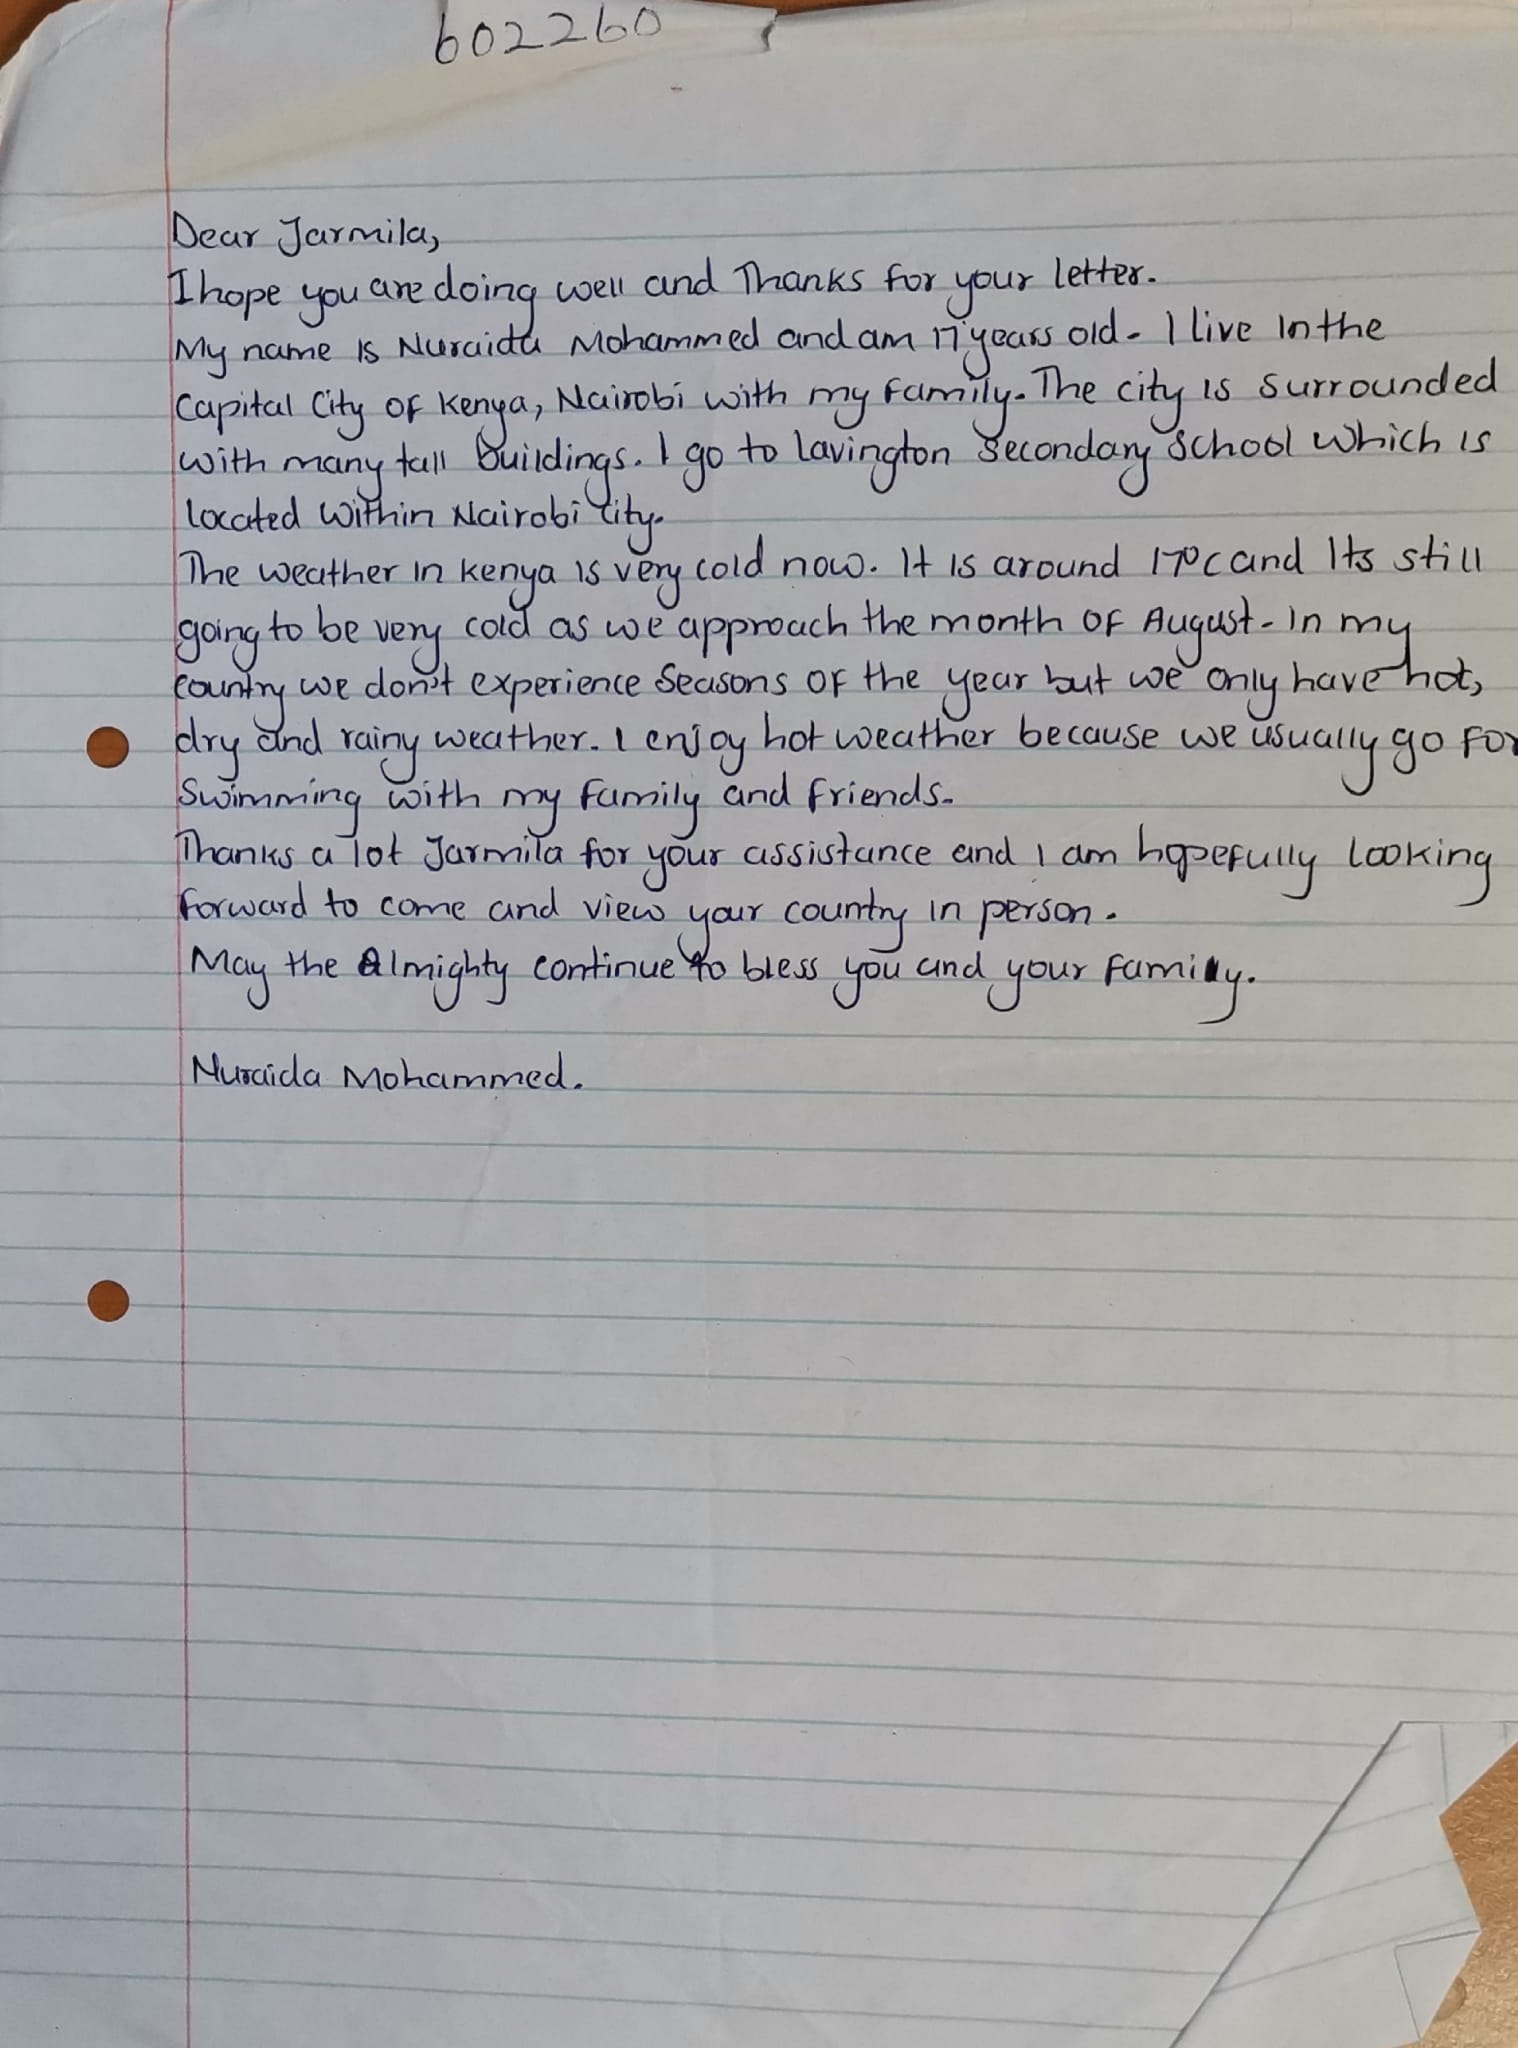 602260
Dear Jarmila,
I hope you are doing well and Thanks for your letter.
My name is Nuraida Mohammed and am 17 years old. I live in the
Capital City of Kenya, Nairobi with my family. The city is surrounded
with many tall buildings. I go to Lavington Secondary School which is
located within Nairobi City.
The weather in Kenya is very cold now. It is around 17°C and Its still
going to be very cold as we approach the month of August. In my
country we don't experience seasons of the year but we only have hot,
dry and rainy weather. I enjoy hot weather because we usually go for
Swimming with my family and friends.
Thanks a lot Jarmila for your assistance and I am hopefully looking
forward to come and view your country in person.
May the Almighty continue to bless you and your family.
Nuraida Mohammed.